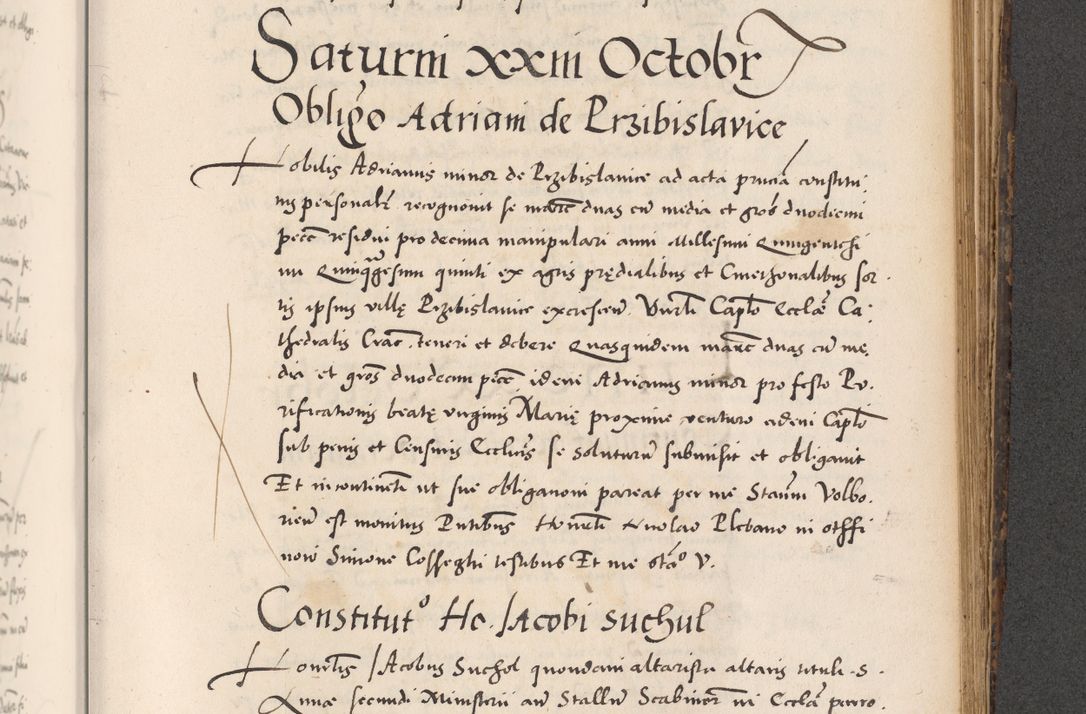 Saturni xxiii Octobr
Obligo Adriani de Przibislavice
Nobilis Adrianus minor de Przibislavice ad acta pnciā constitu
tus personalr recognovit se marc duas cū media et gros duodecim
pecc residui pro decima manipulari anni Millesimi Quingentesi
mi Quinqgesimi quinti ex agris prędialibus et Cmethonalibus sor
tis ipsius villę Przibislavice excrescen Vnrli Caplo Eccle Ca
thedralis Crac. teneri et debere Quasquidem marc duas cū me
dia et gros duodecim pecc idem Adrianus minor pro festo Pu
rificationis beatę virginis Marię proxime venturo eidem Caplo
sub penis et Censuris Ecclicis se soluturū submisit et obligavit
Et incontinenti ut sue obligationi pareat per me Stanm Volbo
rien est monitus Pntibus Honrli Nicolao Plebano in
Simone Cosseghi testibus Et me Stāo V.
Constituto Ho. Jacobi Suchul
Honrlis Jacobus Suchol quondam altarista altaris tituli S.
Annae secundi Ministerii an Stallum Scabinor in Eccla